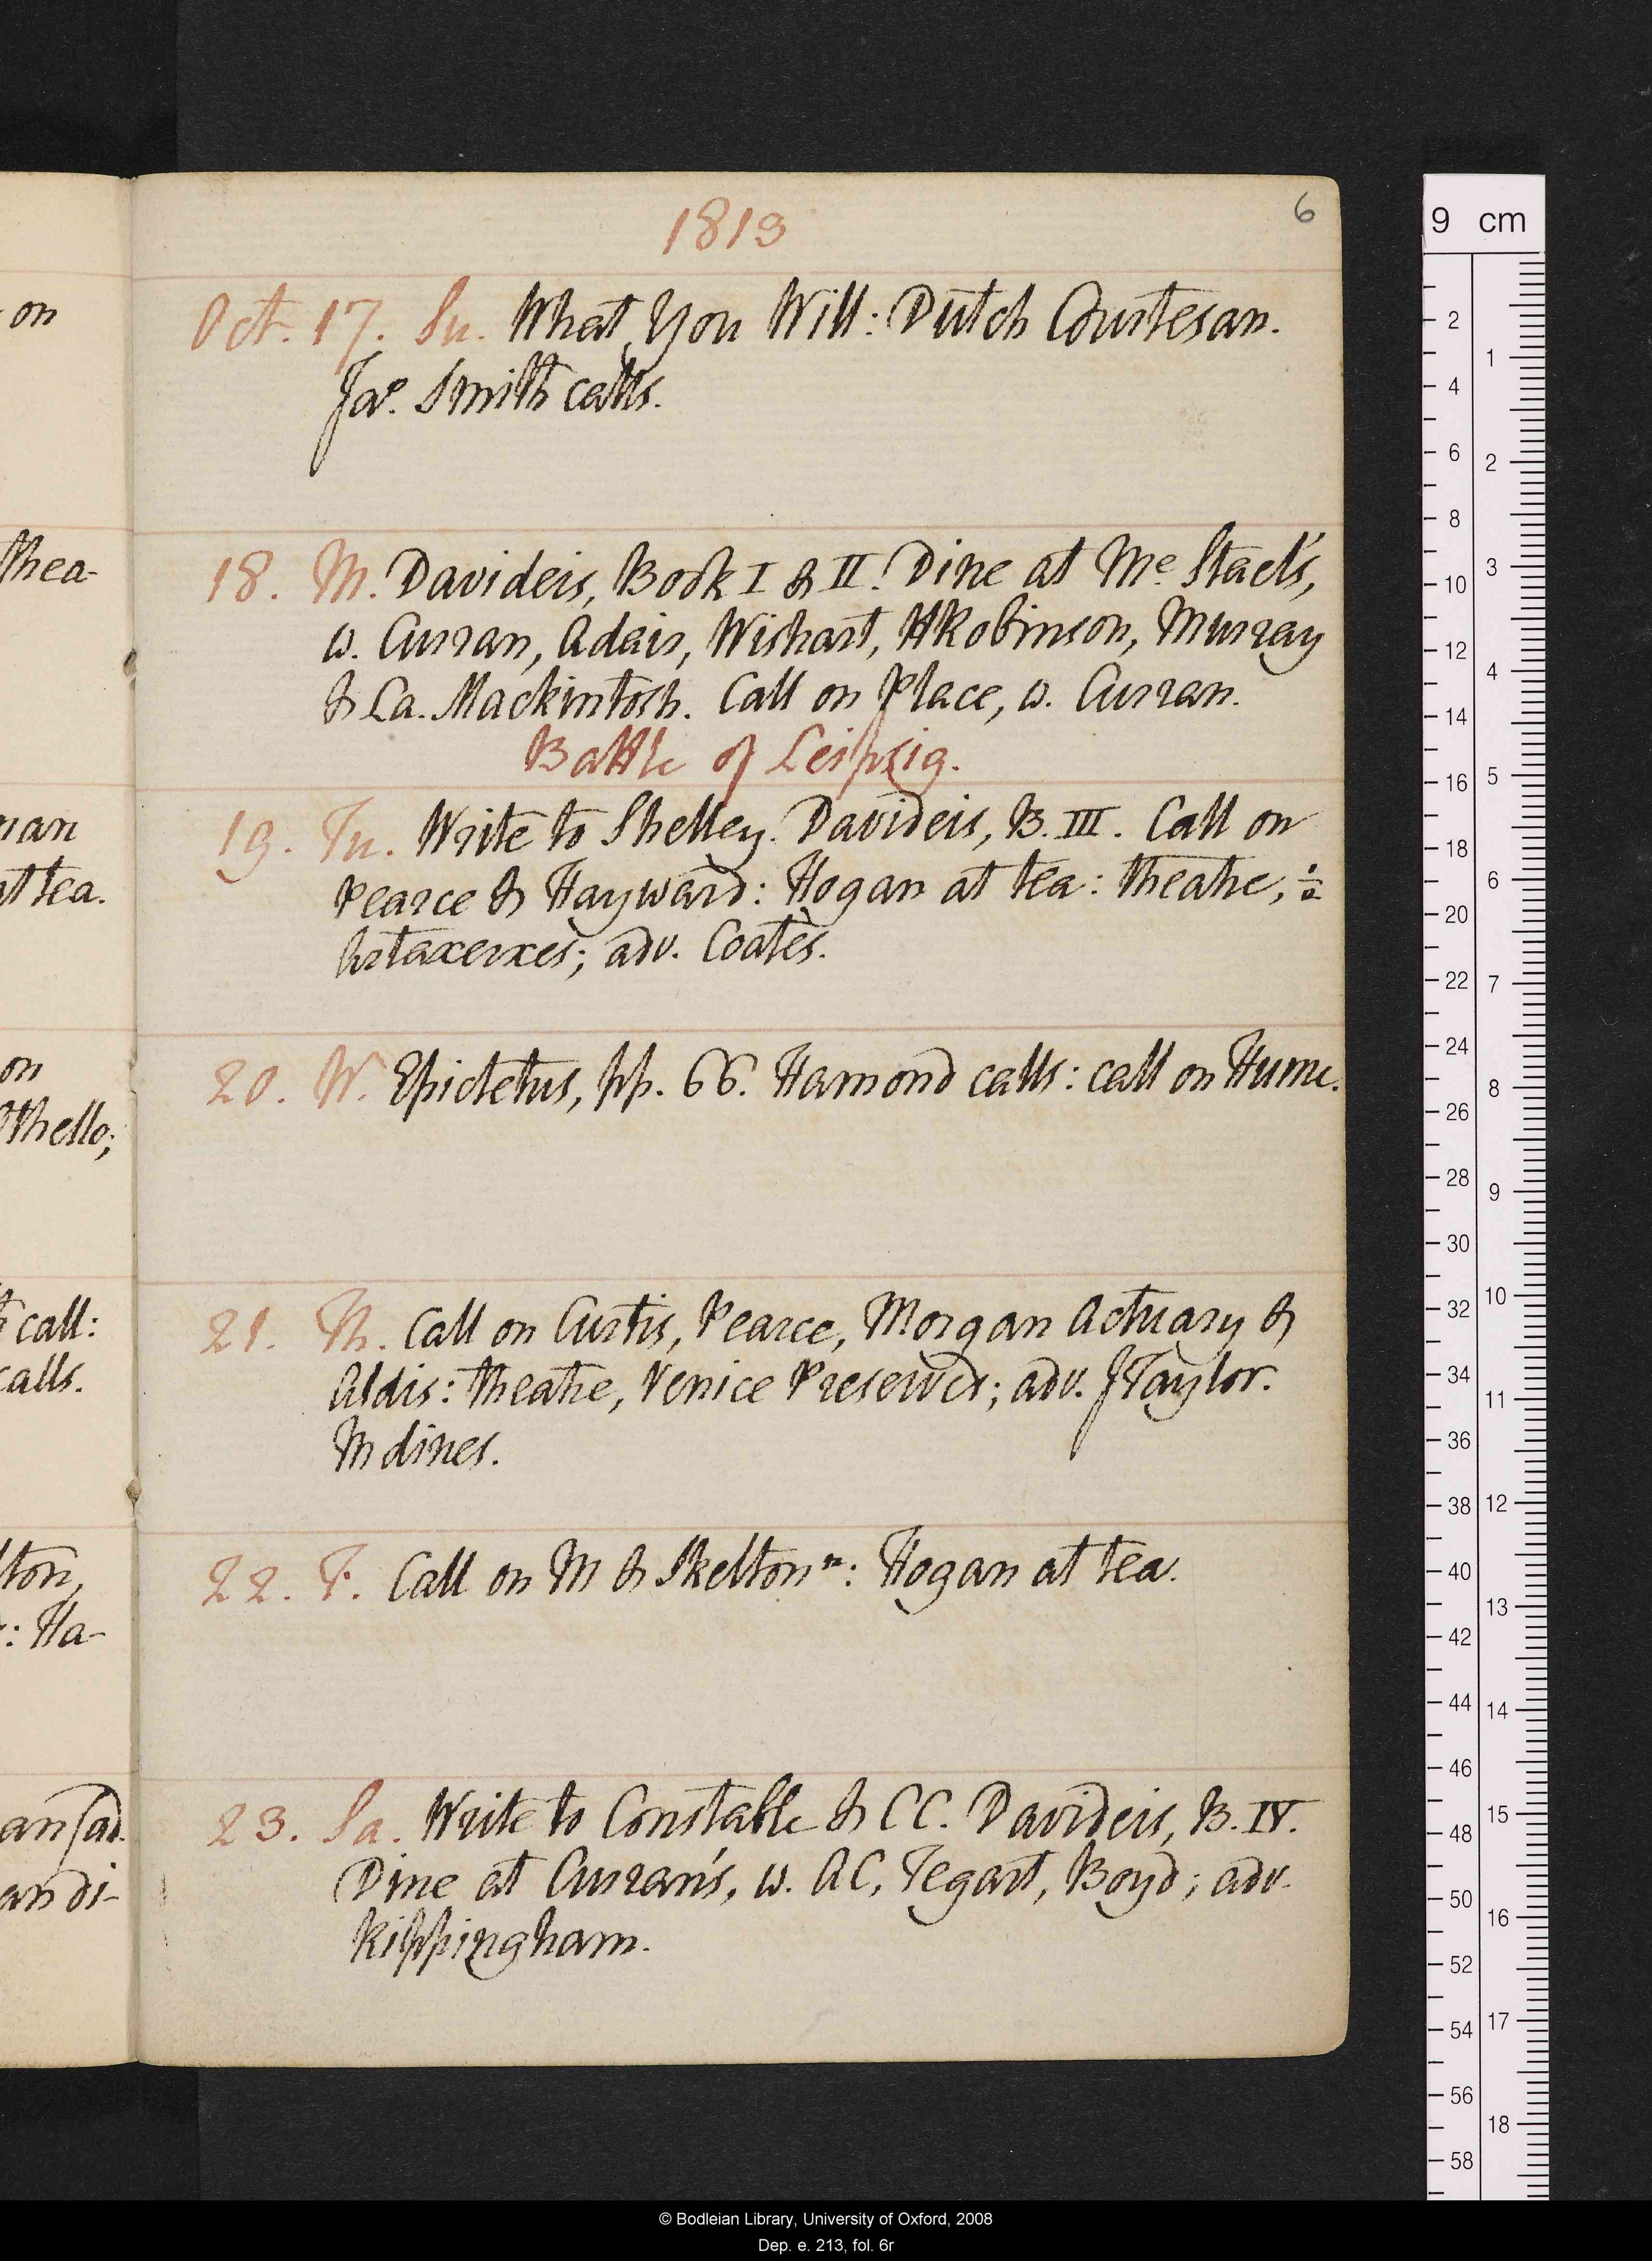 1813
6
Oct. 17. Su. What You Will: Dutch Courtesan.
Jas. Smith calls.
18. M. Davideis, Book I & II. Dine at Me. Stael's,
w. Curran, Adair, Wishart, HRobinson, Murray
& La. Mackintosh. Call on Place, w. Curran.
Battle of Leipzig.
19. Tu. Write to Shelley. Davideis, B. III. Call on
Pearce & Hayward: Hogan at tea: theatre, ½
Artaxerxes; adv. Coates.
20. W. Epictetus, pp. 66. Hamond calls: call on Hume.
21. Th. Call on Curtis, Pearce, Morgan Actuary &
Aldis: theatre, Venice Preserved; adv. JTaylor.
M dines.
22. F. Call on M & Skelton n: Hogan at tea.
23. Sa. Write to Constable & CC. Davideis, B. IV.
Dine at Curran's, w. AC, Tegart, Boyd; adv.
Kippingham.
on
thea-
man
at tea.
on
Othello;
call:
calls.
lton,
: Ha-
an (ad.
an di-
9 cm
2
4
6
8
10
12
14
16
18
20
22
24
26
28
30
32
34
36
38
40
42
44
46
48
50
52
54
56
58
1
2
3
4
5
6
7
8
9
10
11
12
13
14
15
16
17
18
© Bodleian Library, University of Oxford, 2008
Dep. e. 213, fol. 6r